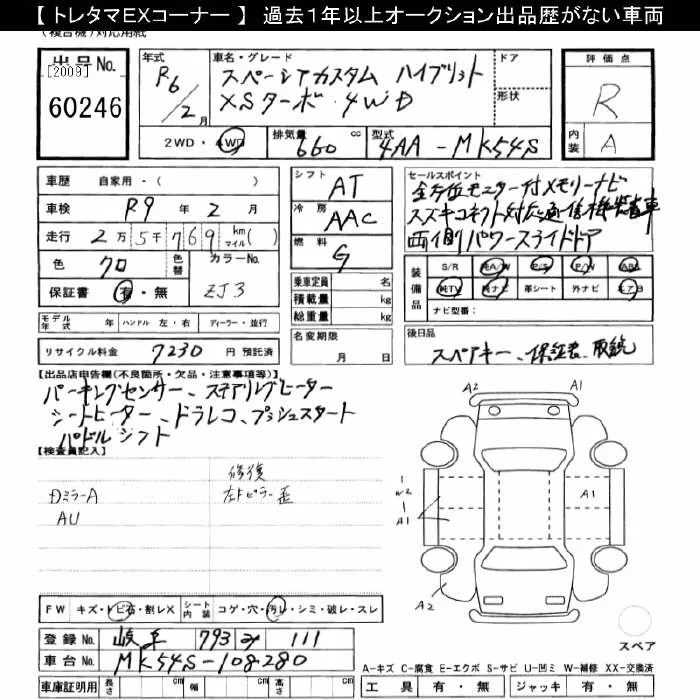 【 トレタマＥＸコーナー 】 過去１年以上オークション出品歴がない車両
(複合機) 対応用紙
出品No.
[2009]
60246
年式
R6/2月
車名・グレード
スペーシアカスタム ハイブリット
XSターボ 4WD
ドア
形状
2WD・4WD
排気量
660 cc
型式
4AA-MK54S
評価点
R
内装
A
車歴 自家用・( )
車検 R9年2月
走行 2万5千769 km マイル( )
色 クロ
色替
カラーNo.
ZJ3
保証書 有・無
モデル年式 年 ハンドル 左・右 ディーラー・並行
リサイクル料金 7230 円 預託済
シフト AT
冷房 AAC
燃料 G
乗車定員 名
積載量 kg
総重量 kg
名変期限
月 日
セールスポイント
全方位モニター付メモリーナビ
スズキコネクト対応通信機装着車
両側パワースライドドア
装備品
S/R 純A/W P/S P/W ABS
純TV 純ナビ 革シート 外ナビ エアB
ナビ型番:
後日品
スペアキー、保証書、取説
【出品店申告欄(不良箇所・欠品・注意事項等)】
パーキングセンサー、ステアリングヒーター
シートヒーター、ドラレコ、プッシュスタート
パドルシフト
【検査員記入】
修復
Dミラー A
左トピラー歪
AU
A2
A1
1
W2
1
A1
A1
A2
スペア
FW キズ・トビ石・割レX
シート内装 コゲ・穴・汚レ・シミ・破レ・スレ
登録No. 岐阜 793 み 111
車台No. MK54S-108280
車庫証明用 長さ cm 幅 cm 高さ cm
A-キズ C-腐食 E-エクボ S-サビ U-凹ミ W-補修 XX-交換済
工具 有・無 ジャッキ 有・無